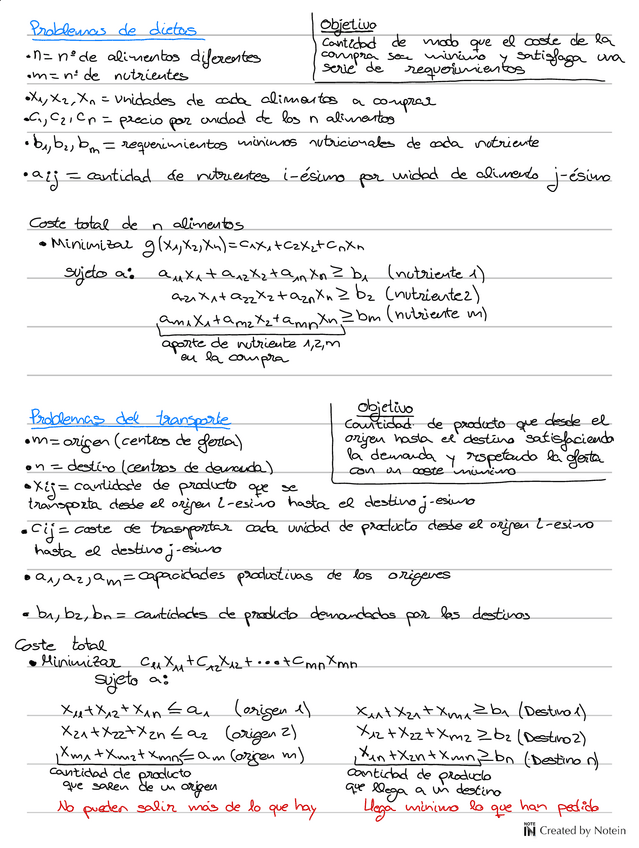 Problemas de dietas
Objetivo
Cantidad de modo que el coste de la
compra sea mínimo y satisfaga una
serie de requerimientos
•n = nº de alimentos diferentes
•m = nº de nutrientes
•x₁, x₂, xn = unidades de cada alimentos a comprar
•c₁, c₂, cn = precio por unidad de los n alimentos
•b₁, b₂, bm = requerimientos minimos nutricionales de cada nutriente
•aij = cantidad de nutrientes i-ésimo por unidad de alimento j-ésimo
Coste total de n alimentos
• Minimizar g(x₁,x₂,xn)=c₁x₁+c₂x₂+cnxn
sujeto a: a₁₁x₁+a₁₂x₂+a₁nxn ≥ b₁ (nutriente 1)
a₂₁x₁+a₂₂x₂+a₂nxn ≥ b₂ (nutriente 2)
am₁x₁+am₂x₂+amnxn ≥ bm (nutriente m)
aporte de nutriente 1,2,m
en la compra
Problemas del transporte
Objetivo
Cantidad de producto que desde el
origen hasta el destino satisfaciendo
la demanda y respetando la oferta
con un coste minimo
•m = origen (centros de oferta)
•n = destino (centros de demanda)
•xij = cantidade de producto que se
transporta desde el origen i-esimo hasta el destino j-esimo
•cij = coste de trasportar cada unidad de producto desde el origen i-esimo
hasta el destino j-esimo
•a₁, a₂, am = capacidades productivas de los origenes
• b₁, b₂, bn = cantidades de producto demandados por los destinos
Coste total
• Minimizar c₁₁x₁₁+c₁₂x₁₂+•••+cmnxmn
sujeto a:
x₁₁+x₁₂+x₁n ≤ a₁ (origen 1)
x₂₁+x₂₂+x₂n ≤ a₂ (origen 2)
xm₁+xm₂+xmn ≤ am (origen m)
Cantidad de producto
que salen de un origen
No pueden salir más de lo que hay
x₁₁+x₂₁+xm₁ ≥ b₁ (Destino 1)
x₁₂+x₂₂+xm₂ ≥ b₂ (Destino 2)
x₁n+x₂n+xmn ≥ bn (Destino n)
Cantidad de producto
que llega a un destino
Llega mínimo lo que han pedido
NOTE IN Created by Notein